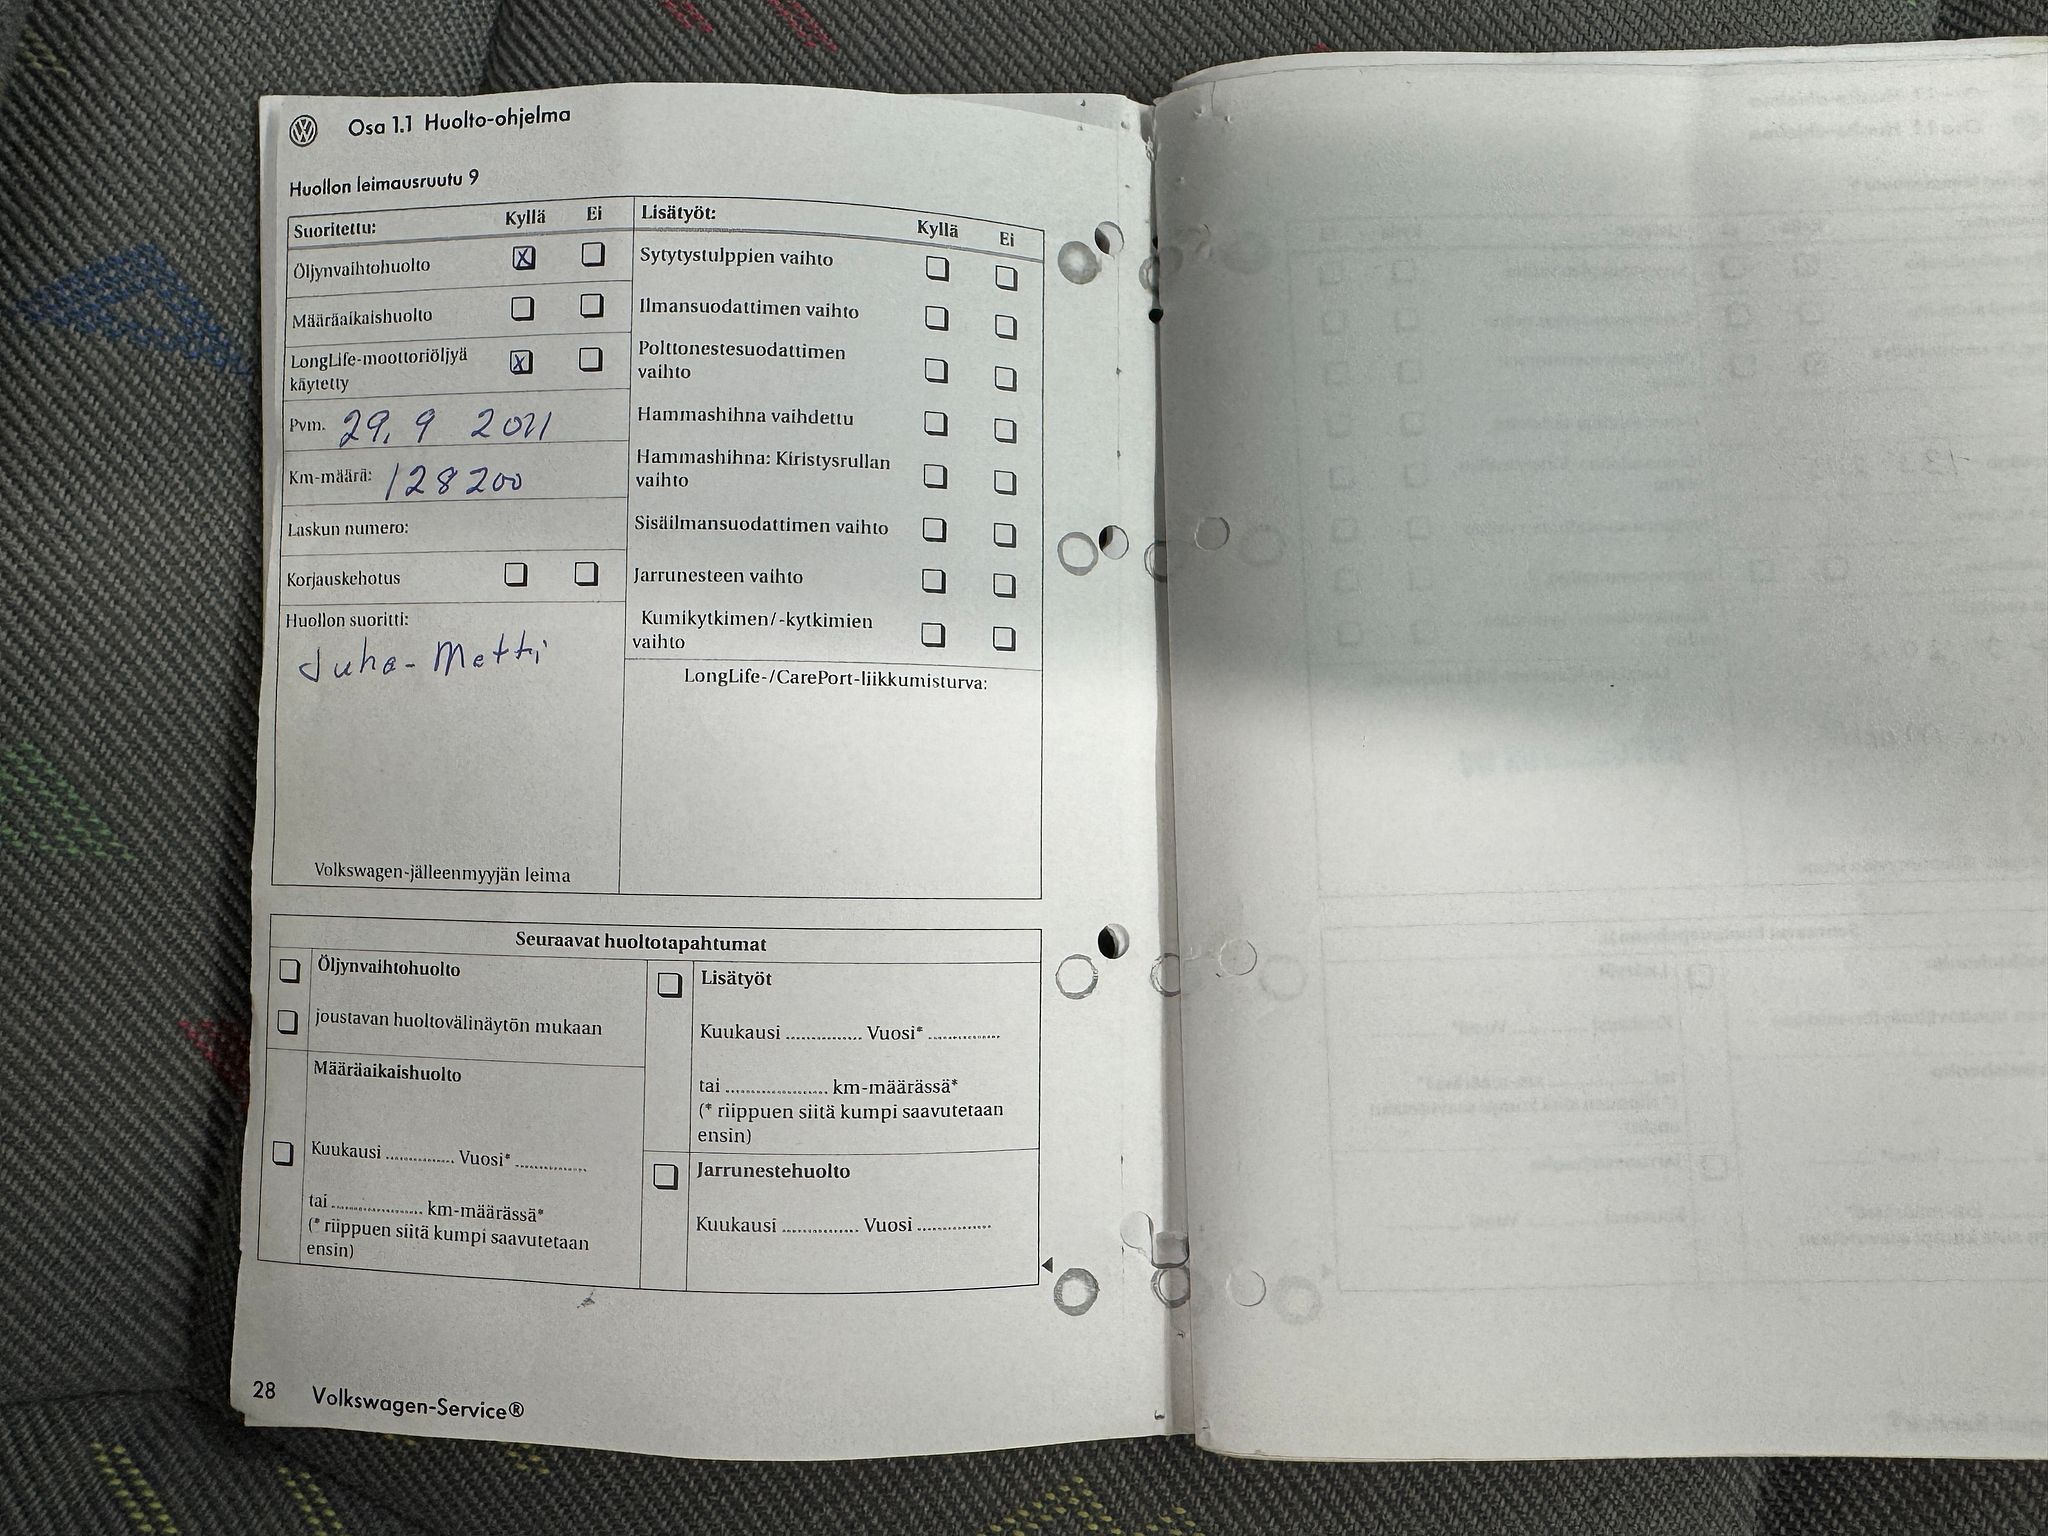 Osa 1.1 Huolto-ohjelma
Huollon leimausruutu 9
Suoritettu: Kyllä Ei
Öljynvaihtohuolto X
Määräaikaishuolto
LongLife-moottoriöljyä
käytetty X
Pvm. 29.9 2011
Km-määrä: 128200
Laskun numero:
Korjauskehotus
Huollon suoritti:
Juha-Matti
Volkswagen-jälleenmyyjän leima
Lisätyöt: Kyllä Ei
Sytytystulppien vaihto
Ilmansuodattimen vaihto
Polttonestesuodattimen
vaihto
Hammashihna vaihdettu
Hammashihna: Kiristysrullan
vaihto
Sisäilmansuodattimen vaihto
Jarrunesteen vaihto
Kumikytkimen/-kytkimien
vaihto
LongLife-/CarePort-liikkumisturva:
Seuraavat huoltotapahtumat
Öljynvaihtohuolto
joustavan huoltovälinäytön mukaan
Määräaikaishuolto
Kuukausi .............. Vuosi* ...............
tai ................... km-määrässä*
(* riippuen siitä kumpi saavutetaan
ensin)
Lisätyöt
Kuukausi ............... Vuosi* ...............
tai .................... km-määrässä*
(* riippuen siitä kumpi saavutetaan
ensin)
Jarrunestehuolto
Kuukausi ............... Vuosi ...............
28 Volkswagen-Service®